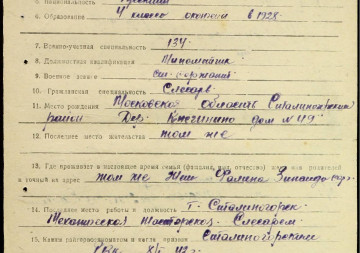 5. Национальность Русский
6. Образование 4 класса окончил в 1928.
7. Военно-учетная специальность 134
8. Должностная квалификация
9. Военное звание ст-сержант
10. Гражданская специальность Слесарь
11. Место рождения Московская область
район Дер. Княгинино дом №49
12. Последнее место жительства том же
13. Где проживает в настоящее время семья (фамилия, имя, отчество)
и точный их адрес том же Жена
14. Последнее место работы и должность г. Сталиногорск
Механическая Мастерская - Слесарем
15. Каким райгорвоенкоматом и когда призван Сталиногорским
РВК